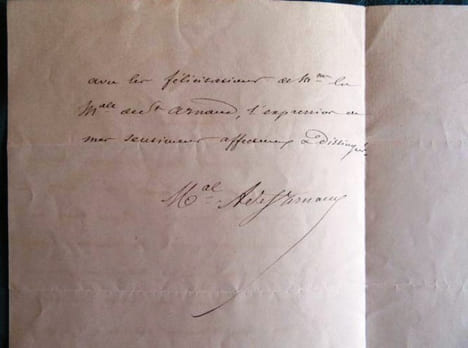 avec les félicitations de Mme la
Male de St Arnaud, l'expression de
mes sentiments affectueux & distingués
Mal A de St Arnaud